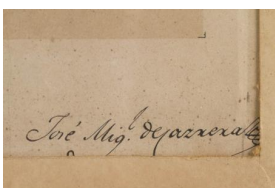 José Mig.l de Carrera